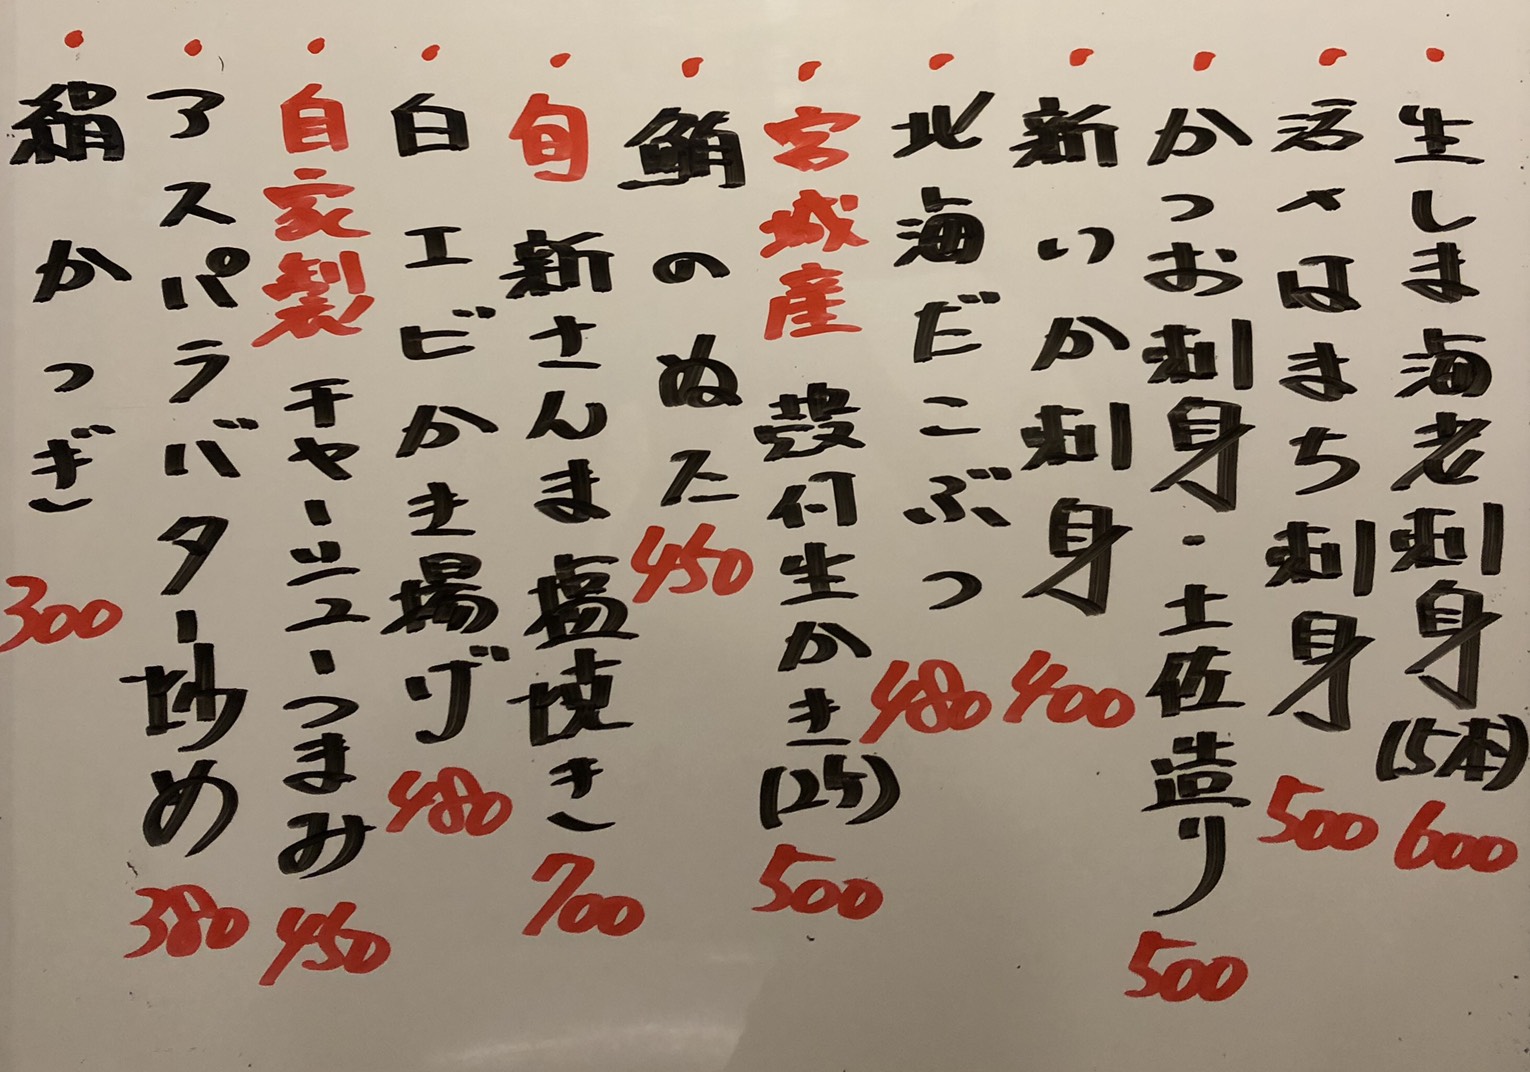 ・生しま海老刺身(5本)600
・活〆はまち刺身 500
・かつお刺身・土佐造り 500
・新いか刺身 400
・北海だこぶつ 480
・宮城産 殻付生かき(2ケ) 500
・鮪のぬた 450
・旬 新さんま塩焼き 700
・白エビかき揚げ 480
・自家製 チャーシューつまみ 450
・アスパラバター炒め 380
・絹かつぎ 300